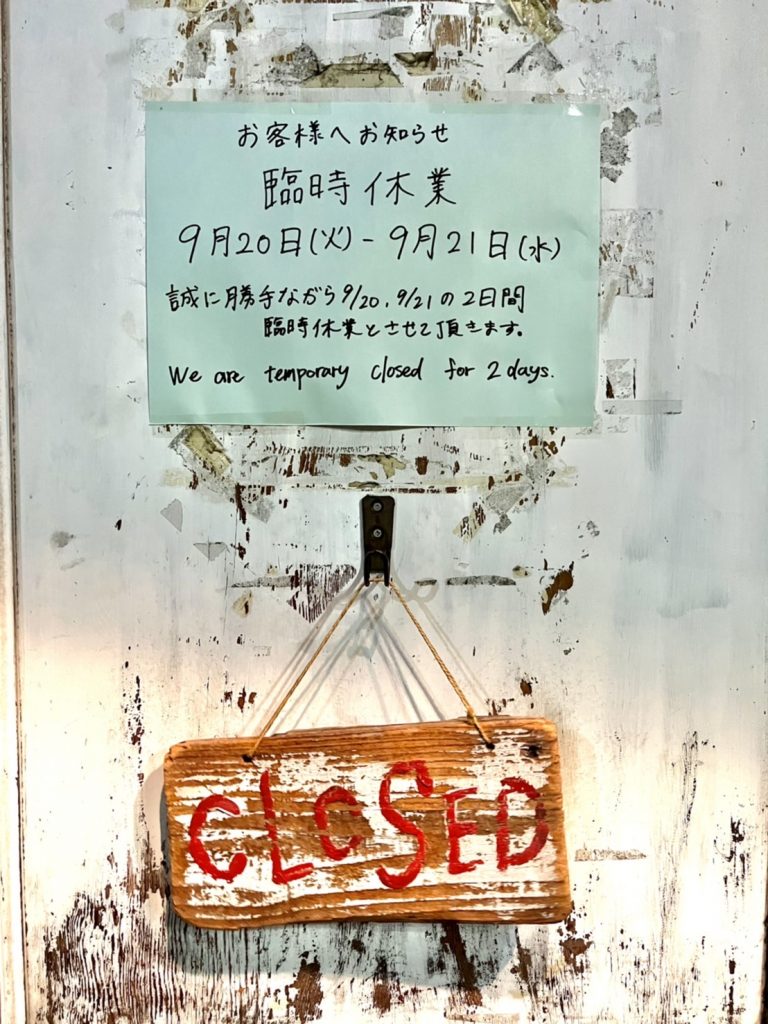 お客様へお知らせ
臨時休業
9月20日(火)-9月21日(水)
誠に勝手ながら9/20,9/21の2日間
臨時休業とさせて頂きます。
We are temporary closed for 2 days.
CLOSED